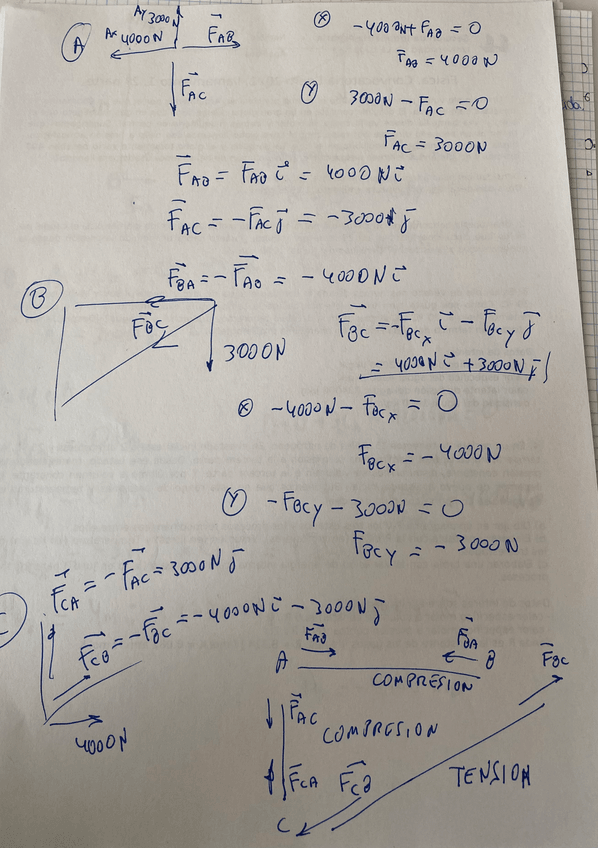 A
Ay 3000N
Ax 4000N
F⃗AB
F⃗AC
X -4000N + FAB = 0
FAB = 4000N
Y 3000N - FAC = 0
FAC = 3000N
F⃗AB = FAB i⃗ = 4000N i⃗
F⃗AC = -FAC j⃗ = -3000N j⃗
F⃗BA = -F⃗AB = -4000N i⃗
B
F⃗BC
3000N
F⃗BC = -FBCx i⃗ - FBCy j⃗
= 4000N i⃗ + 3000N j⃗
X -4000N - FBCx = 0
FBCx = -4000N
Y -FBCy - 3000N = 0
FBCy = -3000N
C
F⃗CA = -F⃗AC = 3000N j⃗
F⃗CB = -F⃗BC = -4000N i⃗ - 3000N j⃗
4000N
A F⃗AB F⃗BA B
COMPRESION
F⃗BC
F⃗AC
COMPRESION
F⃗CA F⃗CB
TENSION
C